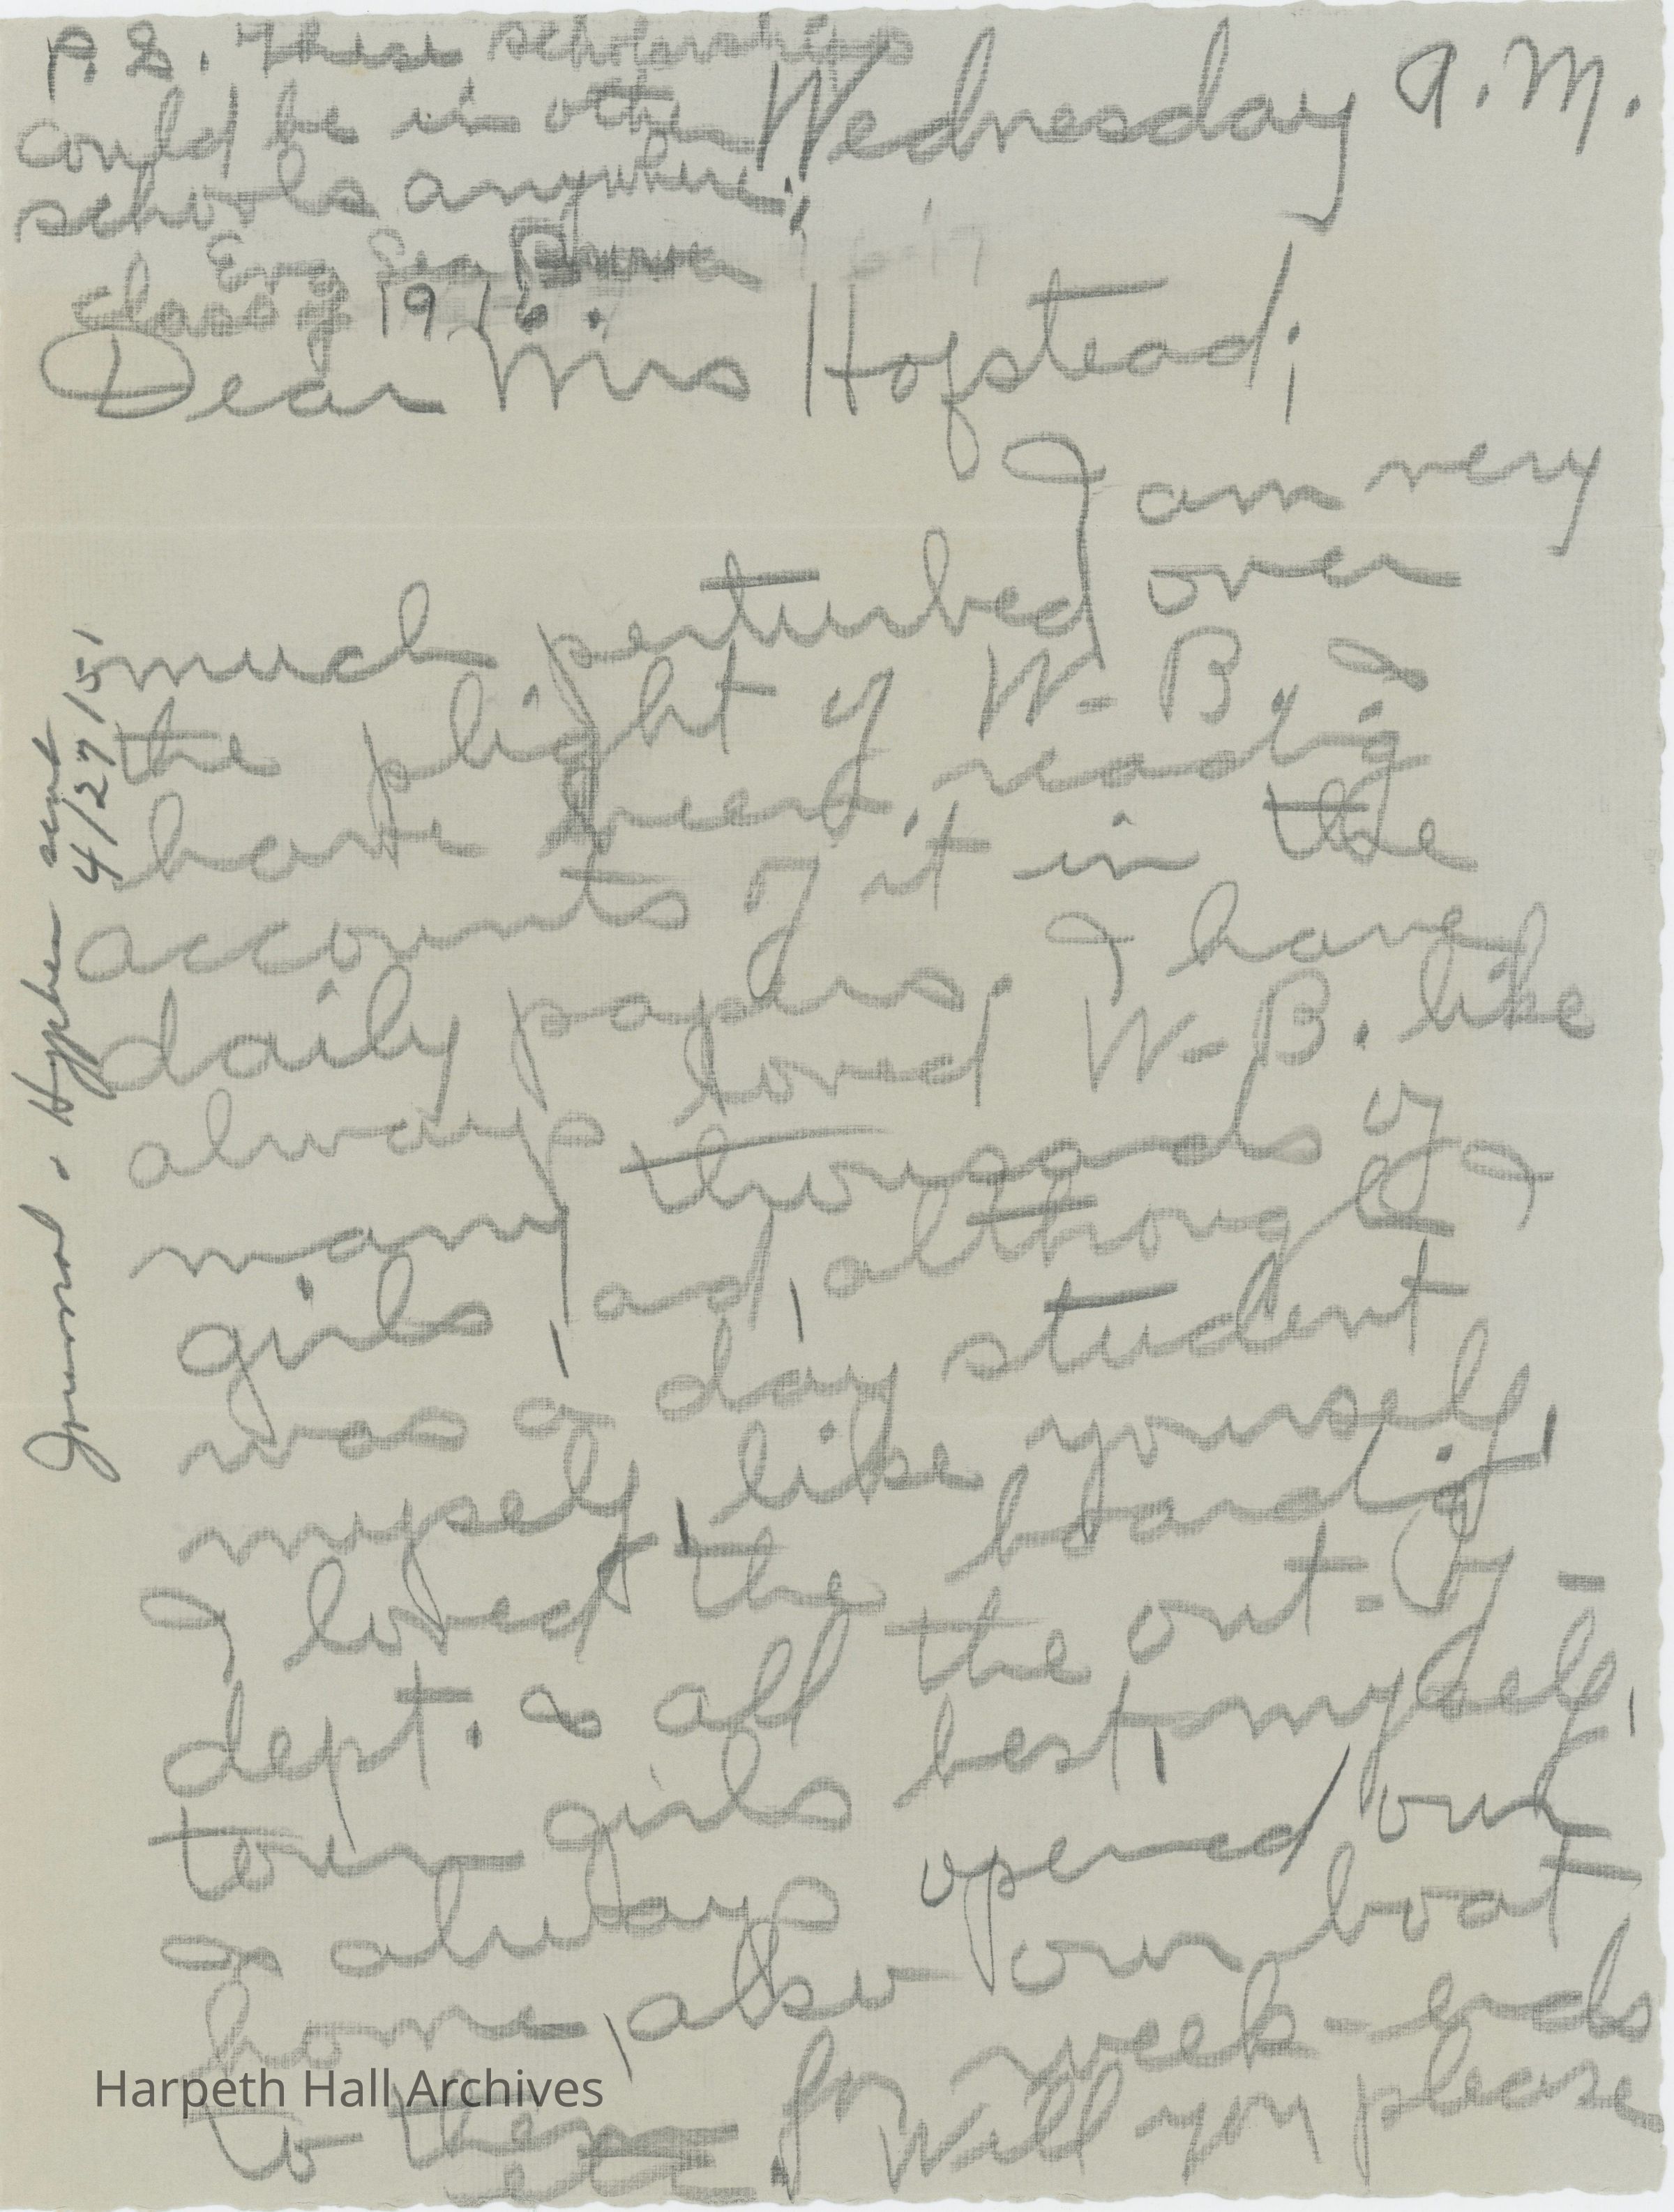 P.S. These scholarships
could be in other
schools anywhere.
class of 1916.
Wednesday A.M.
Dear Miss Hofstead;
I am very
much perturbed over
the plight of W-B. I
have been reading
accounts of it in the
daily papers. I have
always loved W-B. like
many thousands of
girls, and, although I
was a day student
myself, like yourself,
I loved the boarding
dept. as all the out-of-
town girls best, myself,
as always opened our
home, also our boat
to them for week-ends
etc. Will you please
Journal . Hyphen sent
4/27/51
Harpeth Hall Archives